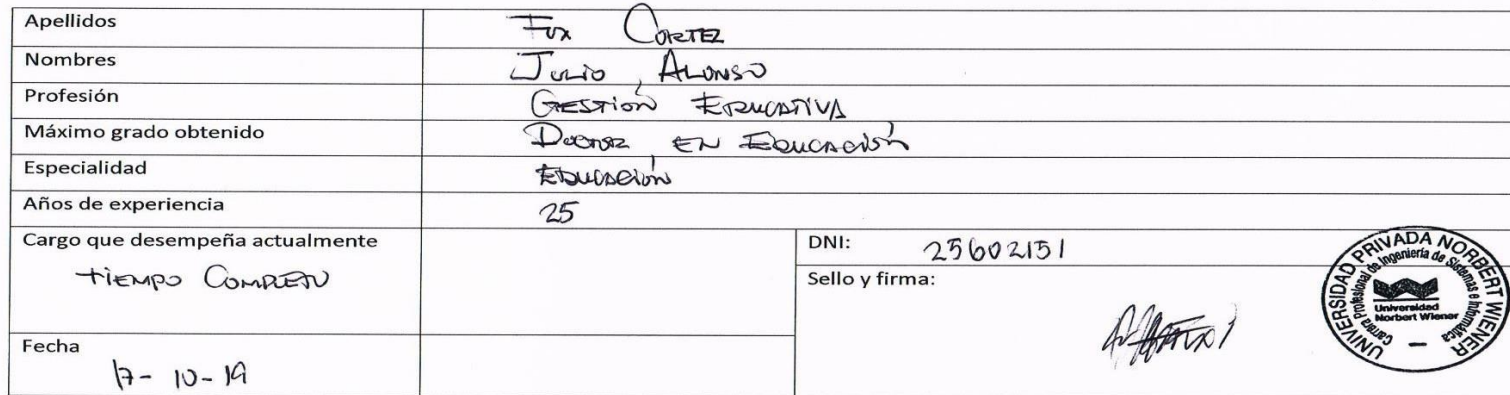 Apellidos Fux Cortez
Nombres Julio, Alonso
Profesión Gestión Educativa
Máximo grado obtenido Doctor en Educación
Especialidad Educación
Años de experiencia 25
Cargo que desempeña actualmente
Tiempo Completo
DNI: 25602151
Sello y firma:
Fecha
17-10-19
UNIVERSIDAD PRIVADA NORBERT WIENER
Carrera Profesional de Ingeniería de Sistemas e Informática
Universidad
Norbert Wiener